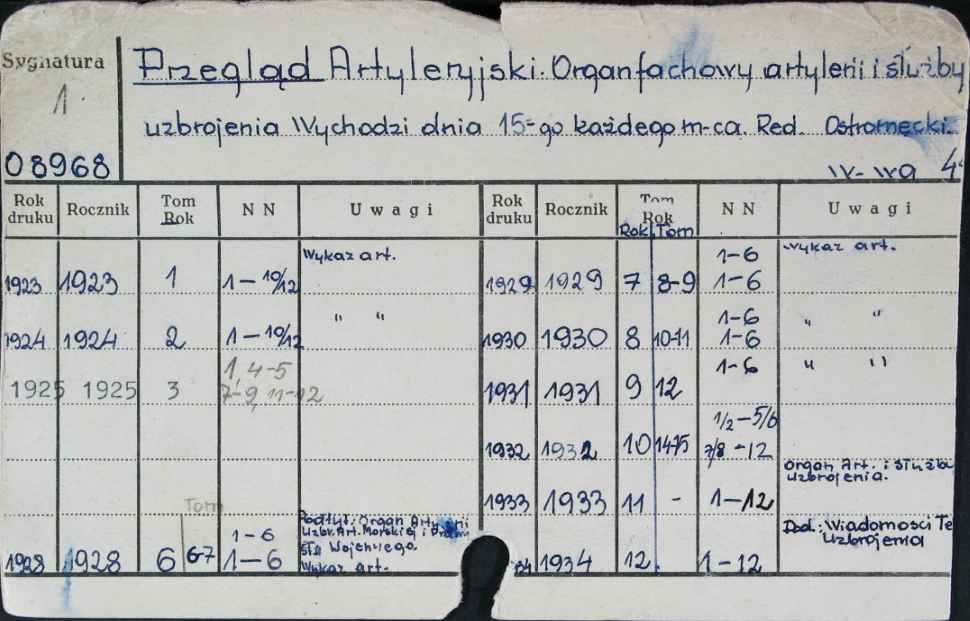 Sygnatura
1.
08968
Przegląd Artyleryjski. Organ fachowy artylerii i służby
uzbrojenia Wychodzi dnia 15-go każdego m-ca. Red. Ostromęcki.
W-wa 4°
Rok druku Rocznik Tom Rok NN Uwagi Rok druku Rocznik Tom Rok NN Uwagi
Rok Tom
1923 1923 1 1-10/12 Wykaz art.
1924 1924 2 1-10/12 " "
1925 1925 3 1, 4-5
7-9, 11-12
Tom
1928 1928 6 6-7 1-6
1-6 Podtyt: Organ Artylerii
Uzbr. Art. Morskiej i
Wojennego.
Wykaz art.
1929 1929 7 8-9 1-6
1-6 Wykaz art.
1930 1930 8 10-11 1-6
1-6 " "
1931 1931 9 12 1-6 " "
1932 1932 10 14-15 1/2-5/6
7/8-12
1933 1933 11 - 1-12 Organ Art. i Służby
uzbrojenia.
34 1934 12 1-12 Dod.: Wiadomości Te
Uzbrojenia